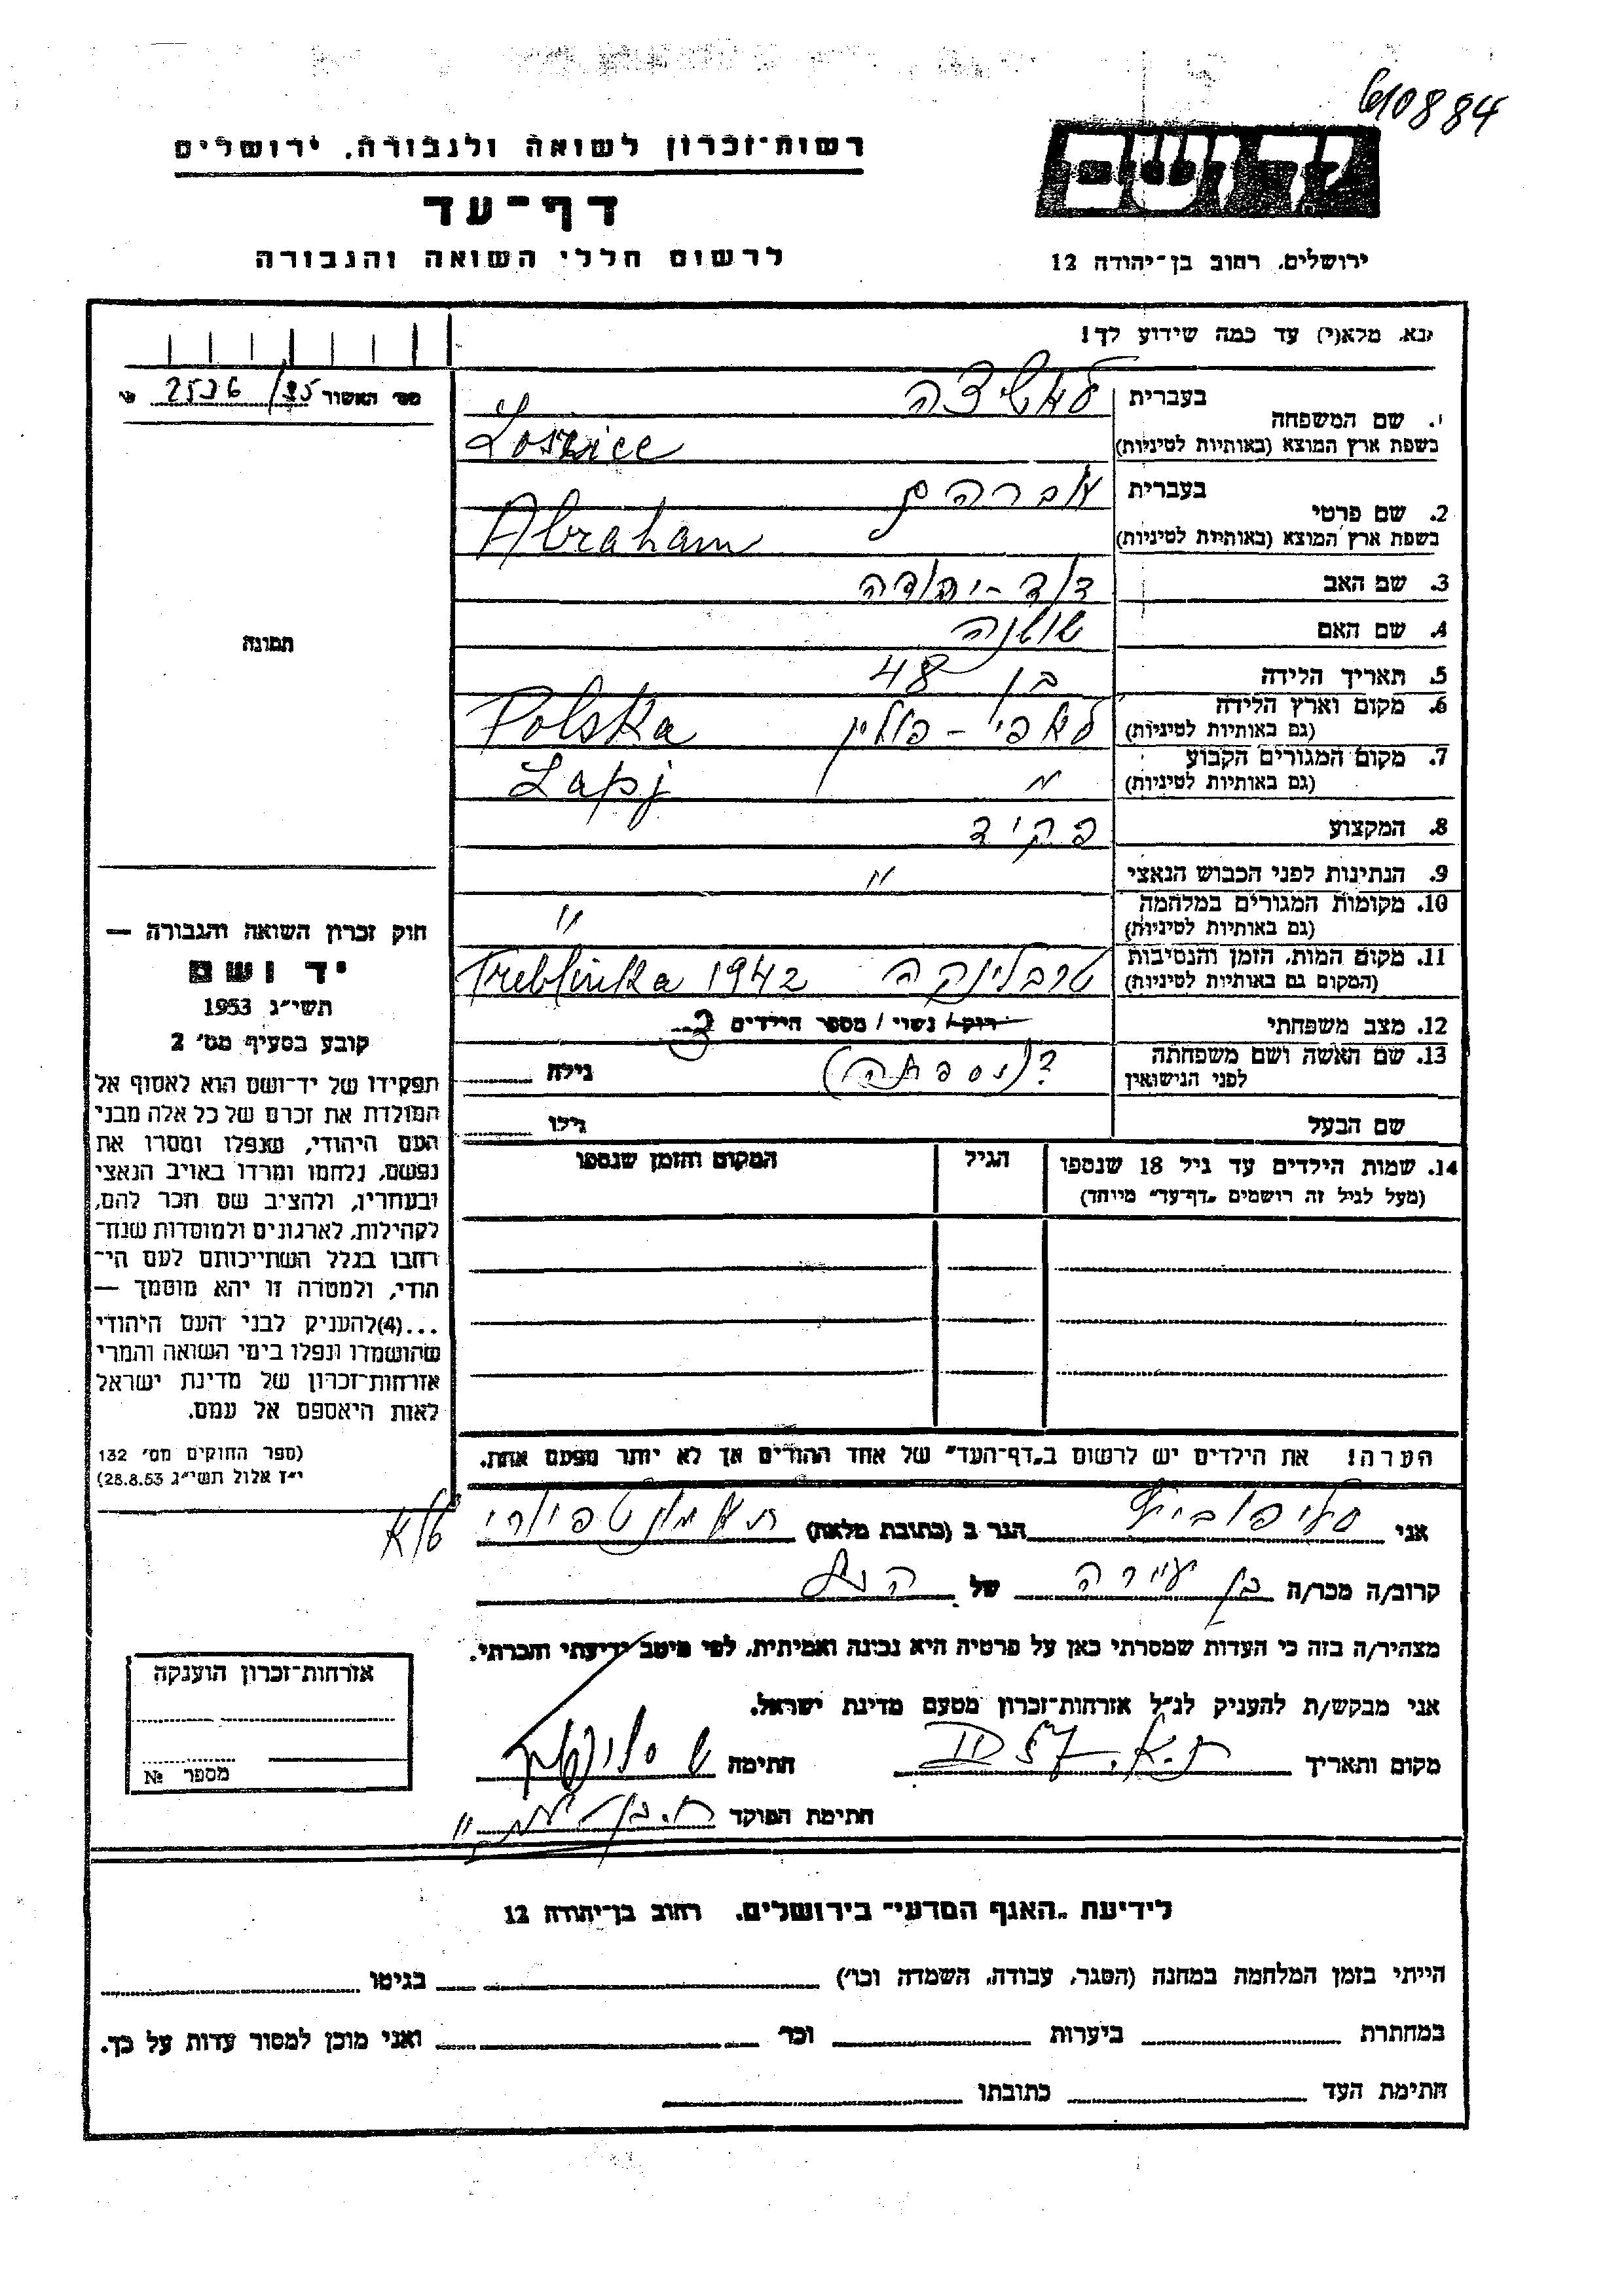 610884
יד ושם
רשות־זכרון לשואה ולגבורה, ירושלים
דף־עד
לרשום חללי השואה והגבורה
ירושלים, רחוב בן־יהודה 12
נא, מלא(י) עד כמה שידוע לך!
מס׳ האשור
1. שם המשפחה בעברית
בשפת ארץ המוצא (באותיות לטיניות) Łosice
2. שם פרטי בעברית אברהם
בשפת ארץ המוצא (באותיות לטיניות) Abraham
3. שם האב דוד-יהודה
4. שם האם שושנה
5. תאריך הלידה בן 48
6. מקום וארץ הלידה לאפי - פולין Polska
(גם באותיות לטיניות)
7. מקום המגורים הקבוע " Lapj
(גם באותיות לטיניות)
8. המקצוע פקיד
9. הנתינות לפני הכבוש הנאצי "
10. מקומות המגורים במלחמה "
(גם באותיות לטיניות)
11. מקום המות, הזמן והנסיבות טרבלינקה Treblinka 1942
(המקום גם באותיות לטיניות)
12. מצב משפחתי רוק/ נשוי / מספר הילדים 3
13. שם האשה ושם משפחתה ?(נספתה) גילה
לפני הנישואין
שם הבעל גילו
14. שמות הילדים עד גיל 18 שנספו הגיל המקום והזמן שנספו
(מעל לגיל זה רושמים „דף־עד״ מיוחד)
הערה! את הילדים יש לרשום ב„דף־העד״ של אחד ההורים אך לא יותר מפעם אחת.
תמונה
חוק זכרון השואה והגבורה —
יד ושם
תשי״ג 1953
קובע בסעיף מס׳ 2
תפקידו של יד־ושם הוא לאסוף אל
המולדת את זכרם של כל אלה מבני
העם היהודי, שנפלו ומסרו את
נפשם, נלחמו ומרדו באויב הנאצי
ובעוזריו, ולהציב שם וזכר להם,
לקהילות, לארגונים ולמוסדות שנח־
רבו בגלל השתייכותם לעם הי־
הודי, ולמטרה זו יהא מוסמך —
...(4)להעניק לבני העם היהודי
שהושמדו ונפלו בימי השואה והמרי
אזרחות־זכרון של מדינת ישראל
לאות היאספם אל עמם.
(ספר החוקים מס׳ 132
י״ז אלול תשי״ג 28.8.53)
אני הגר ב (כתובת מלאה)
קרוב/ה מכר/ה בן עיירה של
מצהיר/ה בזה כי העדות שמסרתי כאן על פרטיה היא נכונה ואמיתית, לפי מיטב ידיעתי והכרתי.
אני מבקש/ת להעניק לנ״ל אזרחות־זכרון מטעם מדינת ישראל.
מקום ותאריך חתימה
חתימת הפוקד
אזרחות־זכרון הוענקה
מספר №
לידיעת „האגף המדעי״ בירושלים, רחוב בן־יהודה 12
הייתי בזמן המלחמה במחנה (הסגר, עבודה, השמדה וכו׳) בגיטו
במחתרת ביערות וכו׳ ואני מוכן למסור עדות על כך.
חתימת העד כתובתו